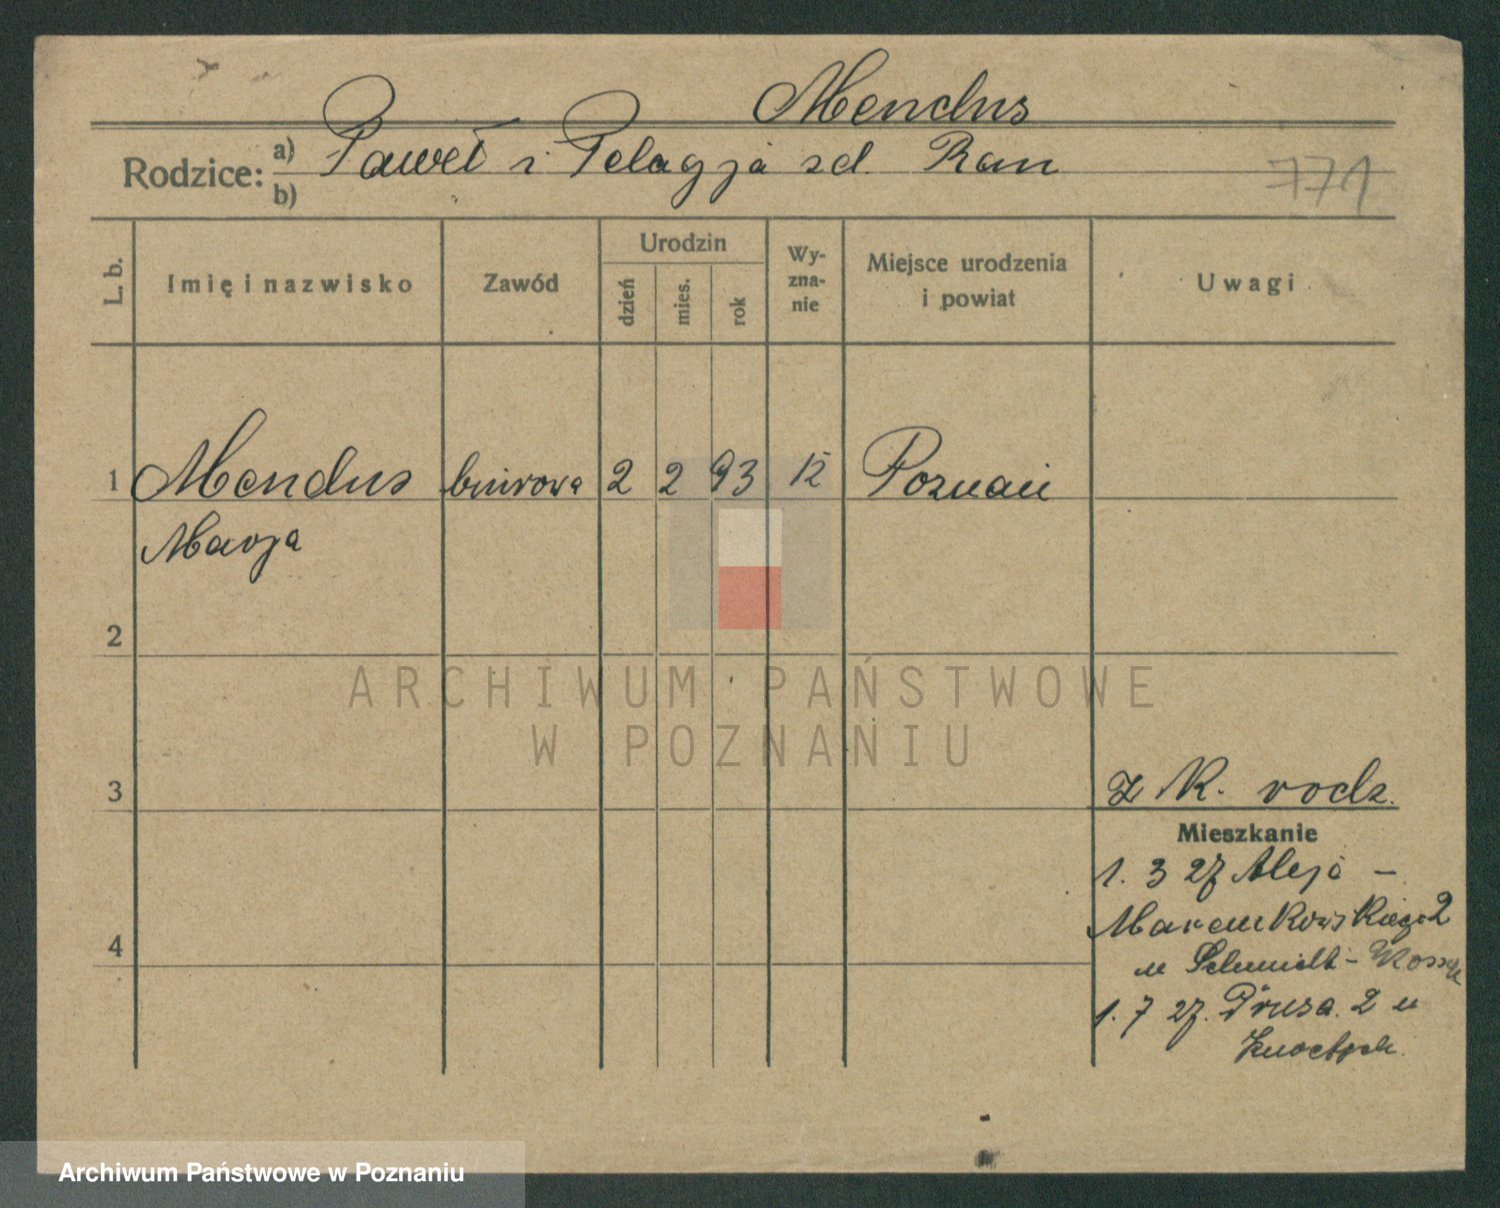 Mendus
Rodzice: a) Paweł i Pelagja zd. Ran
b)
771
L. b. Imię i nazwisko Zawód Urodzin dzień mies. rok Wy-zna-nie Miejsce urodzenia i powiat Uwagi
1 Mendus biurowa 2 2 93 Poznań
Marja
2
ARCHIWUM PAŃSTWOWE
W POZNANIU
3 z K. rodz.
Mieszkanie
1. 3 27 Aleja –
4 Marcinkowskiego 2
u Schmidt-
1. 7 27. Prusa. 2 u
Archiwum Państwowe w Poznaniu